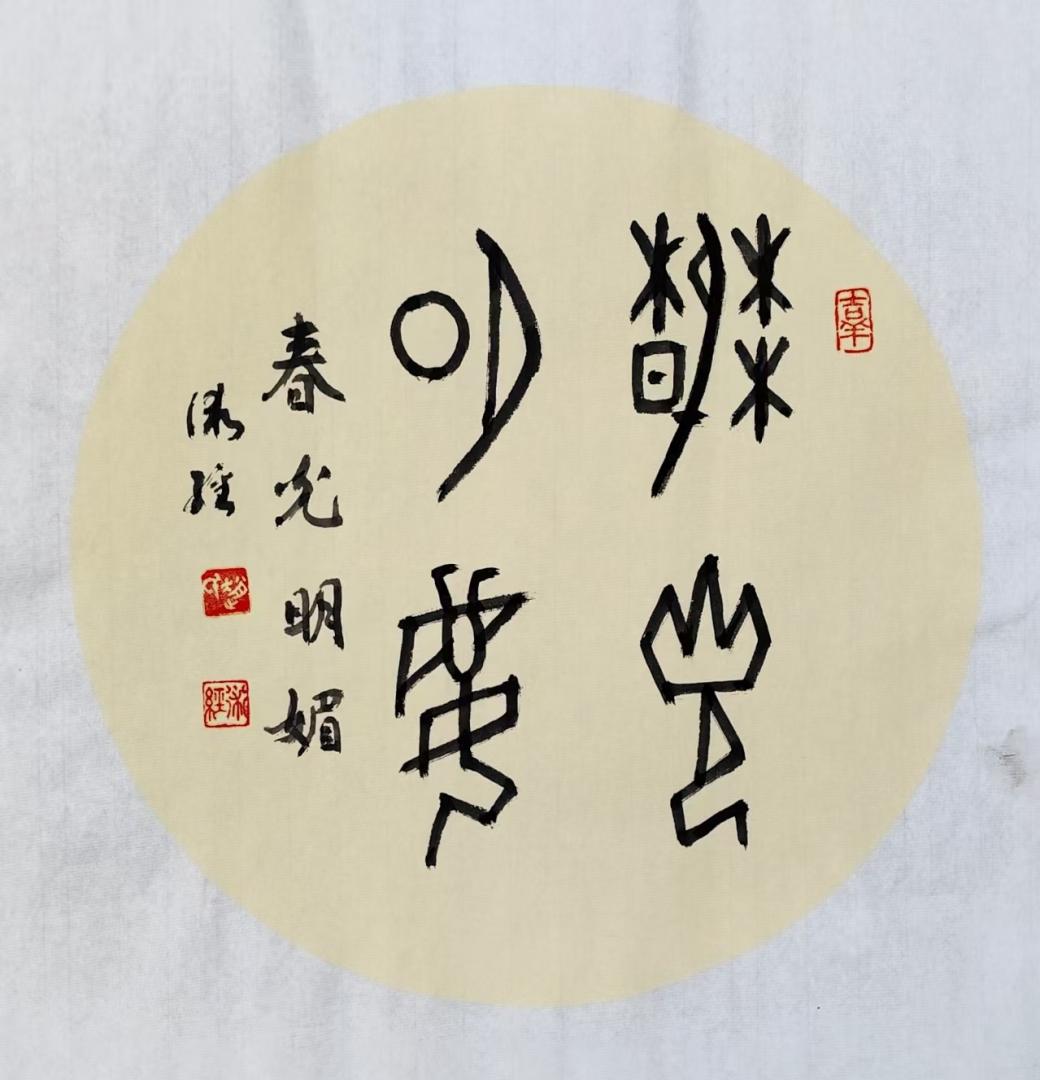 吉羊
春光
明媚
春光明媚